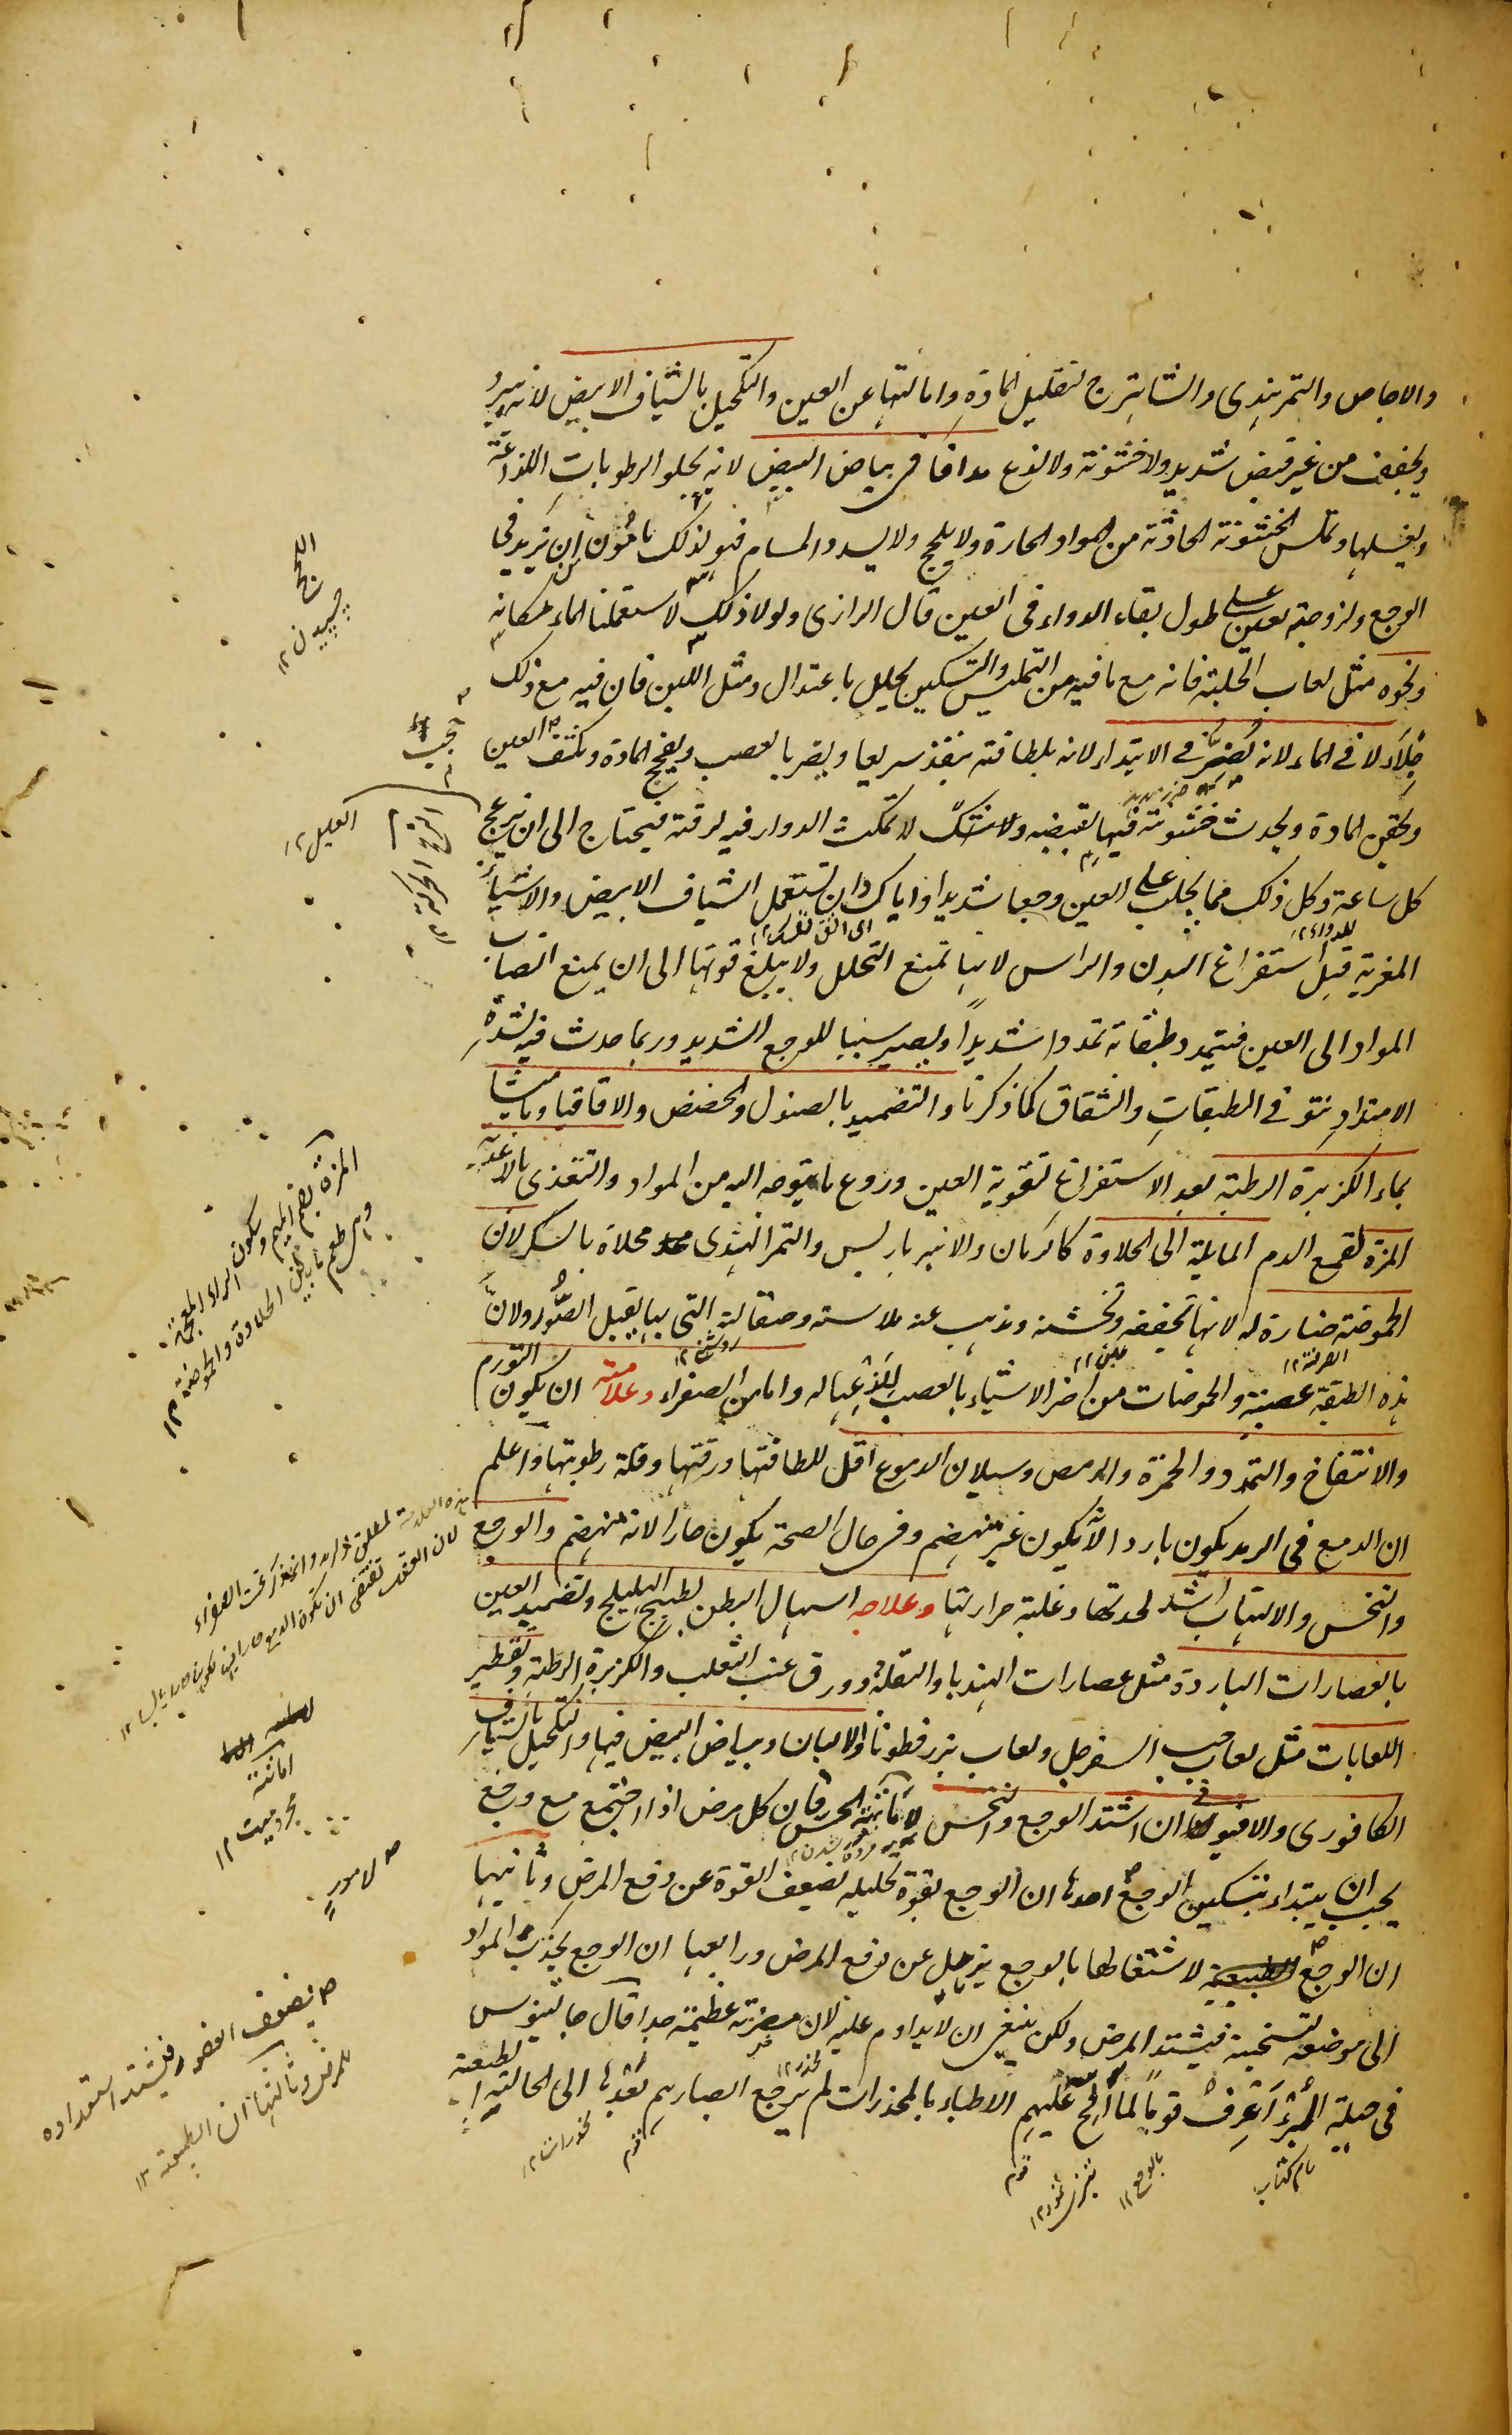 والاجاص والتمر هندی والشاهترج لتقلیل المادة وامالتها عن العین والتکحیل بالشیاف الابیض لانه یبرد
ویجفف من غیر قبض شدید ولا خشونة ولا لذع مدافا فی بیاض البیض لانه یجلو الرطوبات اللذاعة
ویغسلها ویملس الخشونة الحادثة من المواد الحارة ولا یلحج ولا یسدد المسام فهو لذلک مامون ان یزید فی
الوجع ولزوجته تعین علی طول بقاء الدواء فی العین قال الرازی ولولا ذلک لاستعملنا الماء مکانه
ونحوه مثل لعاب الحلبة فانه مع ما فیه من التملیس والتسکین یحلل باعتدال ومثل اللبن فان فیه مع ذلک
جلاء لا فی الماء لانه یضر فی الابتداء لانه بلطافته ینفذ سریعا ویضر بالعصب ویفجج المادة ویکثف العین
ویحقن المادة ویحدث خشونة فیها لقبضه ولا شک لا یمکث الدواء فیه لرقته فیحتاج الی ان یزعج
کل ساعة وکل ذلک مما یجلب علی العین وجعا شدیدا وایاک وان تستعمل الشیاف الابیض والاشیاء
المغریة قبل استفراغ البدن والراس لانها تمنع التحلل ولا یبلغ قوتها الی ان یمنع انصباب
المواد الی العین فتتمدد طبقاته تمددا شدیدا ویصیر سببا للوجع الشدید وربما حدث فیه لشدة
الامتداد نتو فی الطبقات وانشقاق کما ذکرنا والتضمید بالصندل والحضض والاقاقیا ومامیثا
بماء الکزبرة الرطبة بعد الاستفراغ لتقویة العین وردع ما یتوجه الیه من المواد والتغذی بالاغذیة
المزة لقمع الدم المایلة الی الحلاوة کالرمان والانبرباریس والتمر الهندی محلاة بالسکر لان
الحموضة ضارة له لانها تجففه وتخشنه ویذهب عنه ملاسته وصقالته التی بها یقبل الصور ولان
هذه الطبقة عصبیة والحموضات من اضر الاشیاء بالعصب للذعها له واما من الصفراء وعلامته ان یکون التورم
والانتفاخ والتمدد والحمرة والرمص وسیلان الدموع اقل للطافتها ورقتها وقلة رطوبتها واعلم
ان الدمع فی الرمد یکون باردا لانه یکون غیر منهضم وفی حال الصحة یکون حارا لانه منهضم والوجع
والنخس والالتهاب اشد لحدتها وغلبة حرارتها وعلاجه اسهال البطن بطبیخ الهلیلج وتضمید العین
بالعصارات الباردة مثل عصارات الهندبا والبقلة وورق عنب الثعلب والکزبرة الرطبة وتقطیر
اللعابات مثل لعاب حب السفرجل ولعاب بزر قطونا والالبان وبیاض البیض فیها والتکحیل بالشیاف
الکافوری والافیونی ان اشتد الوجع والنخس لاماتته الحس فان کل مرض اذا اجتمع مع وجع
یجب ان یبتداء بتسکین الوجع احدها ان الوجع بقوة تحلیله یضعف القوة عن دفع المرض وثانیها
ان الوجع لاشتغالها بالوجع یذهل عن دفع المرض ورابعها ان الوجع یجذب المواد
الی موضعه لتسخینه فیشتد المرض ولکن ینبغی ان لا یداوم علیه لان مضرته عظیمة جدا قال جالینوس
فی حیلة البرء اعرف قوما لما الح علیهم الاطباء بالمخدرات لم یرجع ابصارهم بعدها الی الحالة الطبیعیة
اللحج
چسپیدن ۱۲
العلیل ۱۲
المزة بضم المیم وسکون الزاء المعجمة
وهی طعم مابین الحلاوة والحموضة ۱۲
اماتة
یضعف العضو فیشتد استعداده
للمرض وثالثها ان الطبیعة ۱۲
نام کتاب
بالوجع ۱۲
قوم